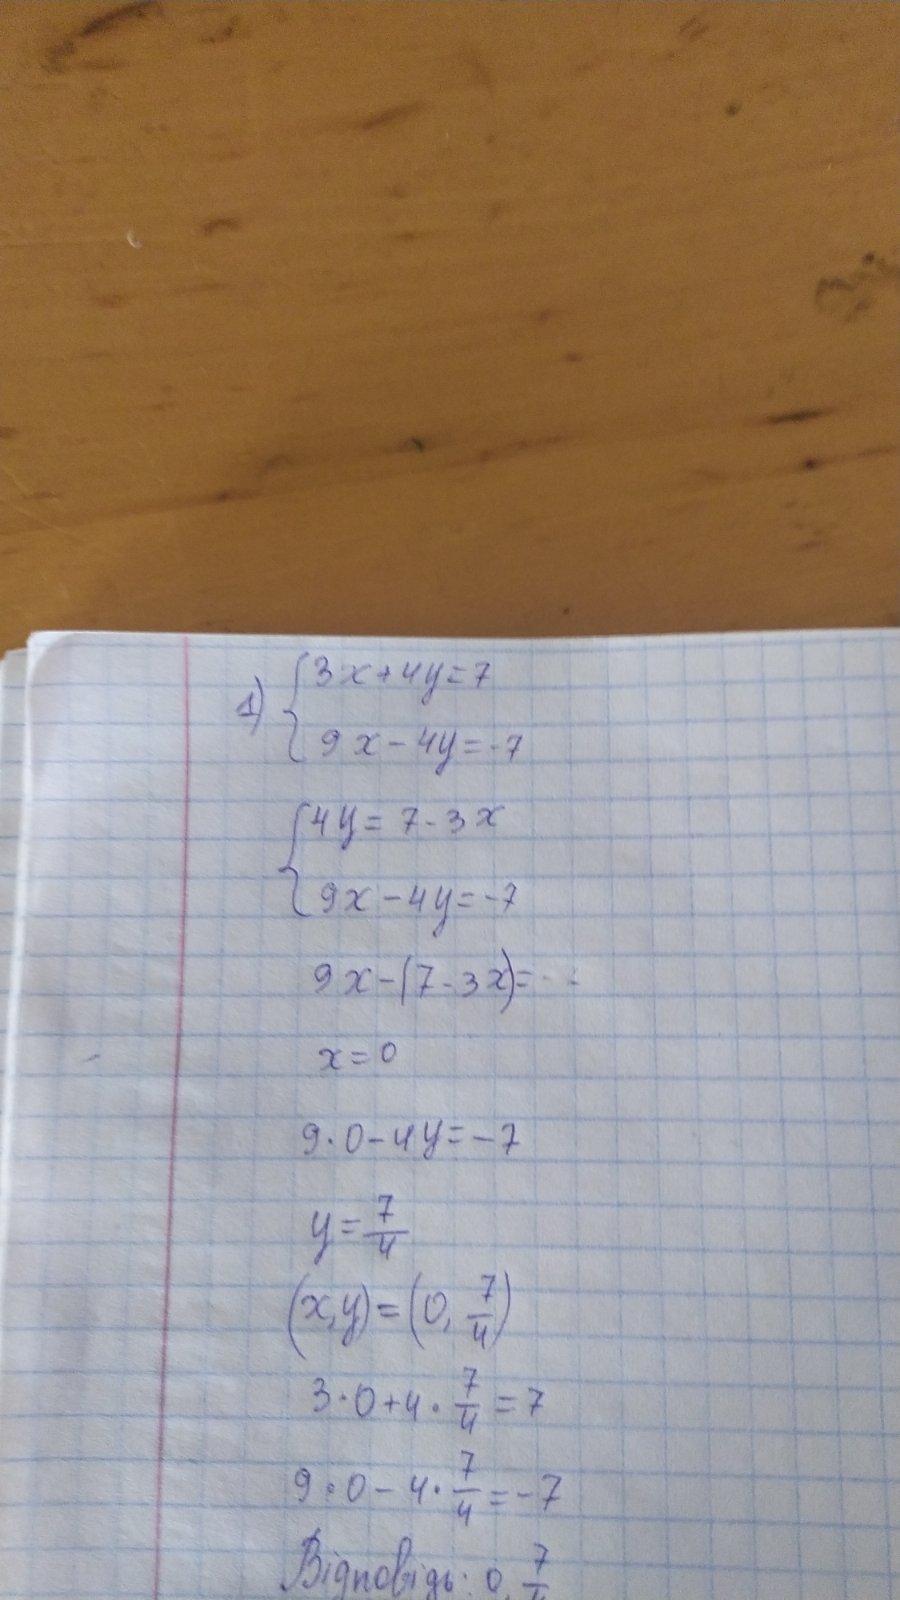 1) {3x+4y=7
9x-4y=-7
{4y=7-3x
9x-4y=-7
9x-(7-3x)=
x=0
9·0-4y=-7
y=7/4
(x,y)=(0, 7/4)
3·0+4·7/4=7
9·0-4·7/4=-7
Відповідь: 0, 7/4